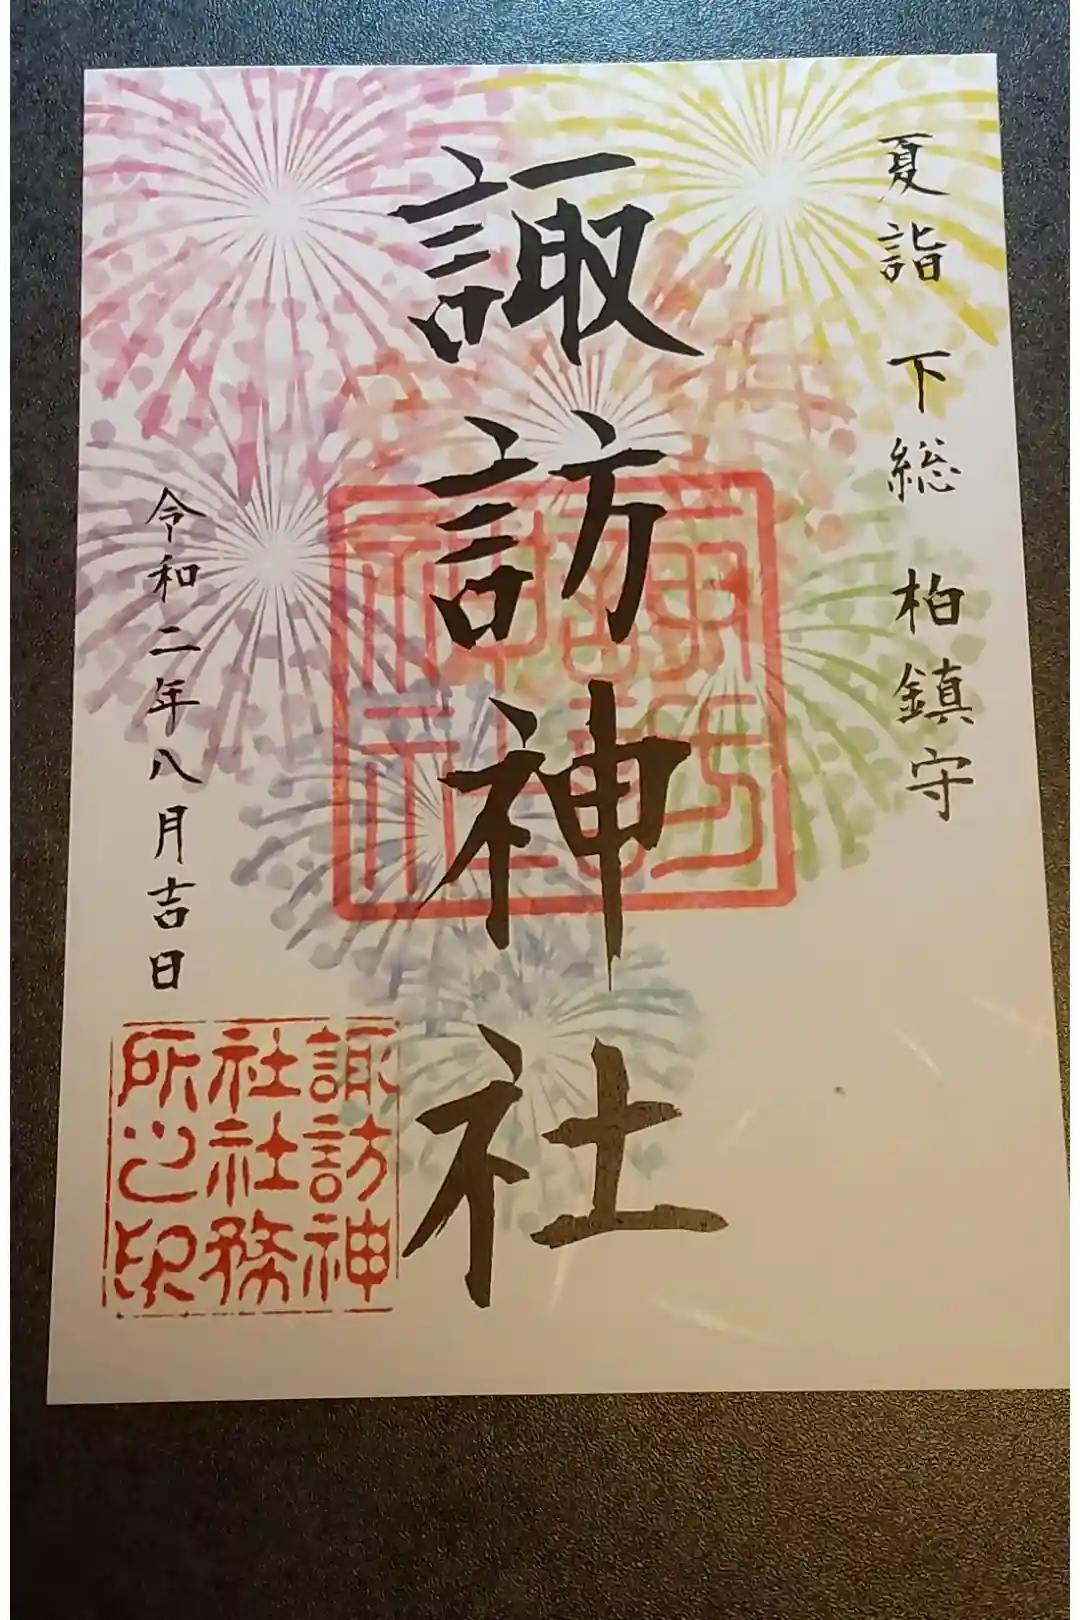 夏詣 下総 柏鎮守
諏訪神社
諏訪神社
令和二年八月吉日
諏訪神
社社務
所之印